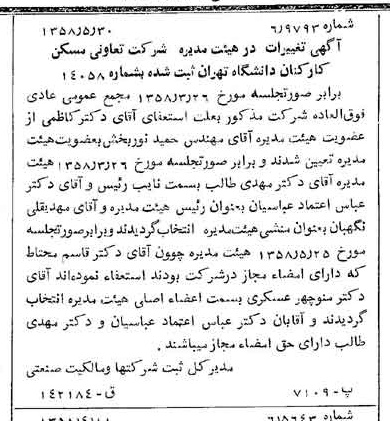 شماره ۶/۹۷۹۳ ۱۳۵۸/۵/۳۰
آگهی تغییرات در هیئت مدیره شرکت تعاونی مسکن
کارکنان دانشگاه تهران ثبت شده بشماره ۱۴۰۵۸
برابر صورتجلسه مورخ ۱۳۵۸/۳/۲۶ مجمع عمومی عادی
فوق‌العاده شرکت مذکور بعلت استعفای آقای دکتر کاظمی از
عضویت هیئت مدیره آقای مهندس حمید نوربخش بعضویت هیئت
مدیره تعیین شدند و برابر صورتجلسه مورخ ۱۳۵۸/۳/۲۶ هیئت
مدیره آقای دکتر مهدی طالب بسمت نایب رئیس و آقای دکتر
عباس اعتماد عباسیان بعنوان رئیس هیئت مدیره و آقای مهدیقلی
نگهبان بعنوان منشی هیئت مدیره انتخاب گردیدند و برابر صورتجلسه
مورخ ۱۳۵۸/۵/۲۵ هیئت مدیره چون آقای دکتر قاسم محتاط
که دارای امضاء مجاز در شرکت بودند استعفاء نموده‌اند آقای
دکتر منوچهر عسکری بسمت اعضاء اصلی هیئت مدیره انتخاب
گردیدند و آقایان دکتر عباس اعتماد عباسیان و دکتر مهدی
طالب دارای حق امضاء مجاز میباشند .
مدیر کل ثبت شرکتها و مالکیت صنعتی
پ-۷۱۰۹ ق-۱۴۲۱۸۴
شماره ۶/۵۶۴۳